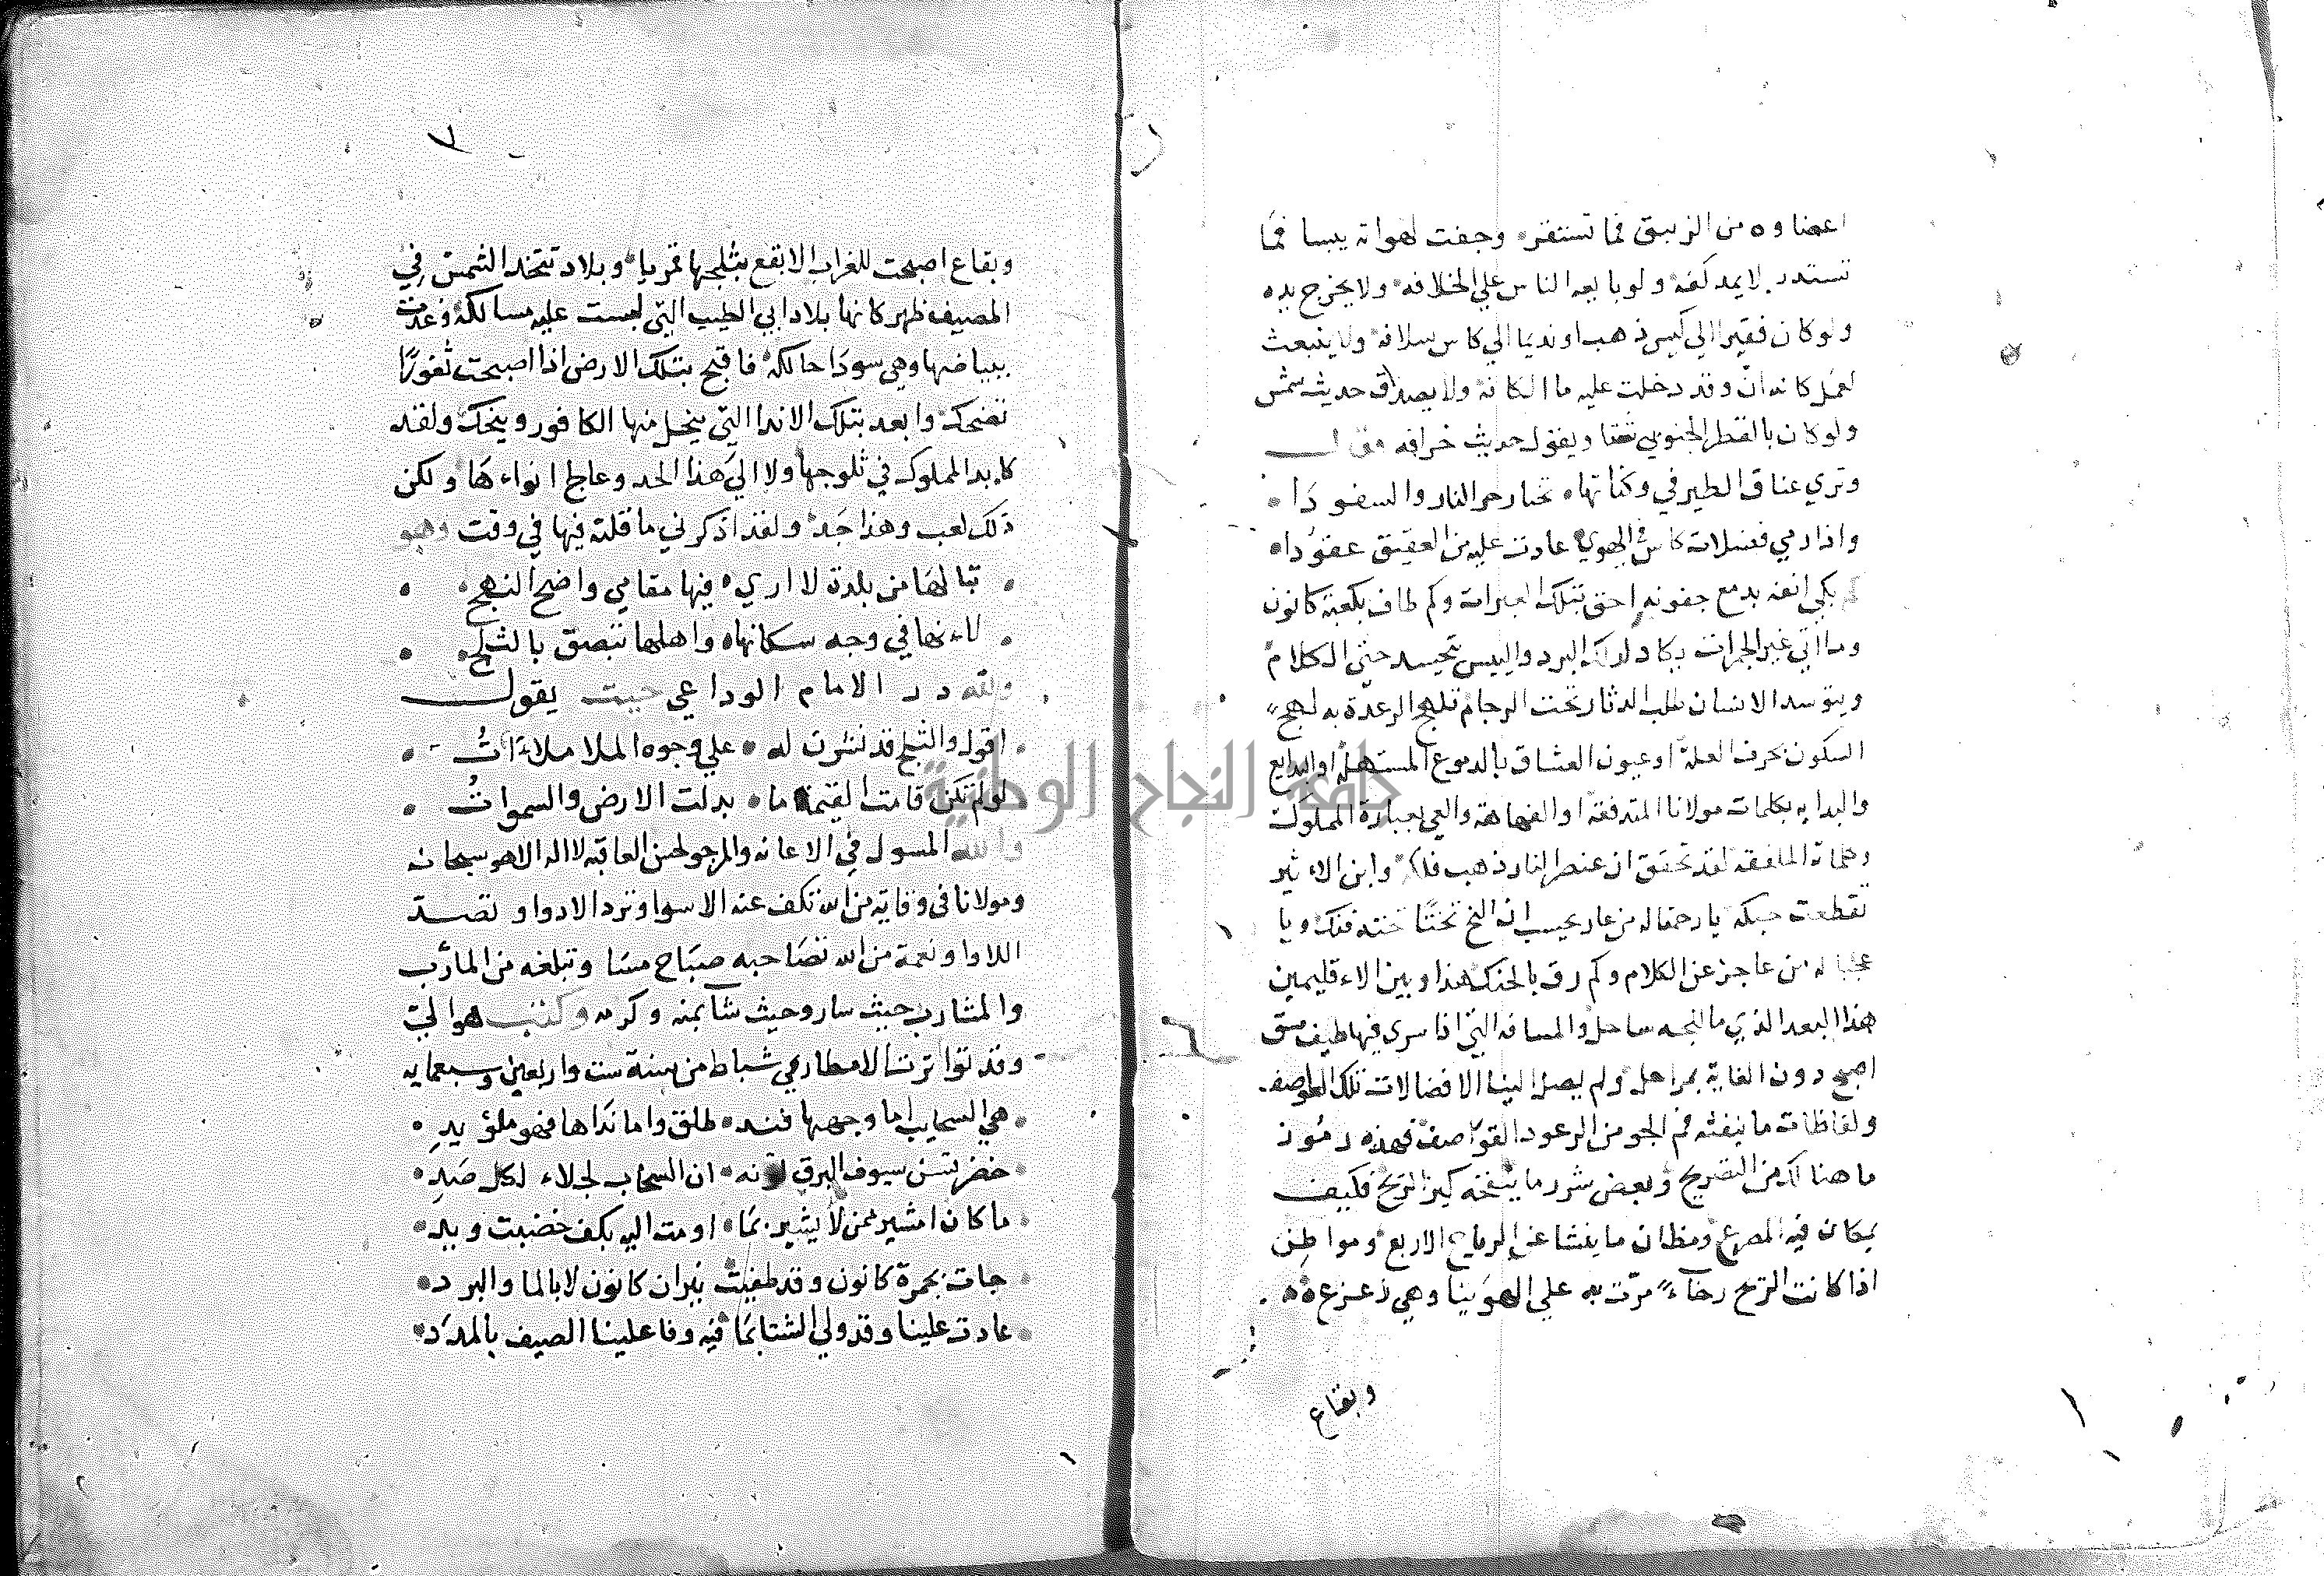 اعضاوه من الزيبق فما تستقر وجفت لهواته يبسا فما
تستدر لا يمد كفه ولو بايعه الناس علي الخلافة ولا يخرج يده
ولو كان فقيرا الي كيس ذهب او نديما الي كاس سلافه ولا ينبعث
لعمل كانه ان وقد دخلت عليه ما الكافة ولا يصدق حديث شمس
ولو كان بالقطر الجنوبي شتا ويقول حديث خرافه
وتري عتاق الطير في وكناتها تختار حر النار والسفودا
واذا رميت فضلات كاس في الهوي عادت عليه من العقيق عقودا
كم بكي انفه بدمع جفونه احق بتلك العبرات وكم طاف بكعبة كانون
وما اتي غير الجمرات يكاد لذلك البرد واليبس يتجسد حتي الكلام
ويتوسد الانسان طلب الدثار تحت الرجام تلهج الرعدة به لهج
السكون بحرف العلة او عيون العشاق بالدموع المستهلة او البدايع
والبدايه بكلمات مولانا المتدفقة او الفهاهة والعي بعبارة المملوك
الملفقة لقد تحقق ان عنصر النار ذهب فلك وابن الاثير
تقطعت حبكه يا رحمتا له من عار يحسب ان الفخ تختا تحته فنك ويا
عجبا له من عاجز عن الكلام وكم رق بالحنك هذا وبين الاقليمين
هذا البعد الذي ما لنجه ساحل والمسافه التي اذا سري فيها طيف مشق
اصبح دون الغاية بمراحل ولم يصل الينا الا فضالات تلك العواصف
ولفاظات ما ينفثه فم الجو من الرعود القواصف فهذه رموز
ما هنالك من التصريح وبعض شرر ما ينفخه كير الريح فكيف
بمكان فيه المصرع ومظان ما ينشا عن الرياح الاربع ومواطن
اذا كانت الريح رخاء مرت به علي الهوينا وهي زعزع
وبقاع
٧
وبقاع اصبحت للغراب الابقع بثلجها قمريا وبلاد تتخذ الشمس في
المصيف ظهر كانها بلاد ابي الطيب التي لبست عليه مسالكه وغدت
ببياضها وهي سودا حالكه فاقبح بتلك الارض اذا اصبحت ثغورا
تضحك وابعد بتلك الاندا التي ينخل منها الكافور ويخك ولقد
كابد المملوك في ثلوجها ولا الي هذا الحد وعالج انواءها ولكن
ذلك لعب وهذا جد ولقد اذكرني ما قلته فيها في وقت وهو
تبا لها من بلدة لا اري فيها مقامي واضح النهج
لانها في وجه سكانها واهلها تبصق بالثلج
ولله در الامام الوداعي حيث يقول
اقول والثلج قد نشرت له علي وجوه الملا ملاءات
لو لم تكن قامت القيمة ما بدلت الارض والسموات
والله المسول في الاعانه والمرجو لحسن العاقبه لا اله الا هو سبحانه
ومولانا في وقاية من الله تكف عنه الاسوا وترد الادوا وتصد
اللاوا ونعمة من الله تصاحبه صباح مسا وتبلغه من المآرب
والمشارب حيث سار وحيث شا بمنه وكرمه وكتب هو الي
وقد تواترت الامطار في شباط من سنة ست واربعين وسبعمايه
هي السحايب اما وجهها فند طلق واما نداها فهو ملؤ يد
خضر تسن سيوف البرق لونه ان السحاب لجلاء لكل صد
ما كان امشير ممن لا يشير بما اومت اليه بكف خضبت ويد
جات بحمرة كانون وقد طفيت نيران كانون لا بالما والبرد
عادت علينا وقد ولي الشتا بما فيه وفا علينا الصيف بالمدد
جامعة النجاح الوطنية